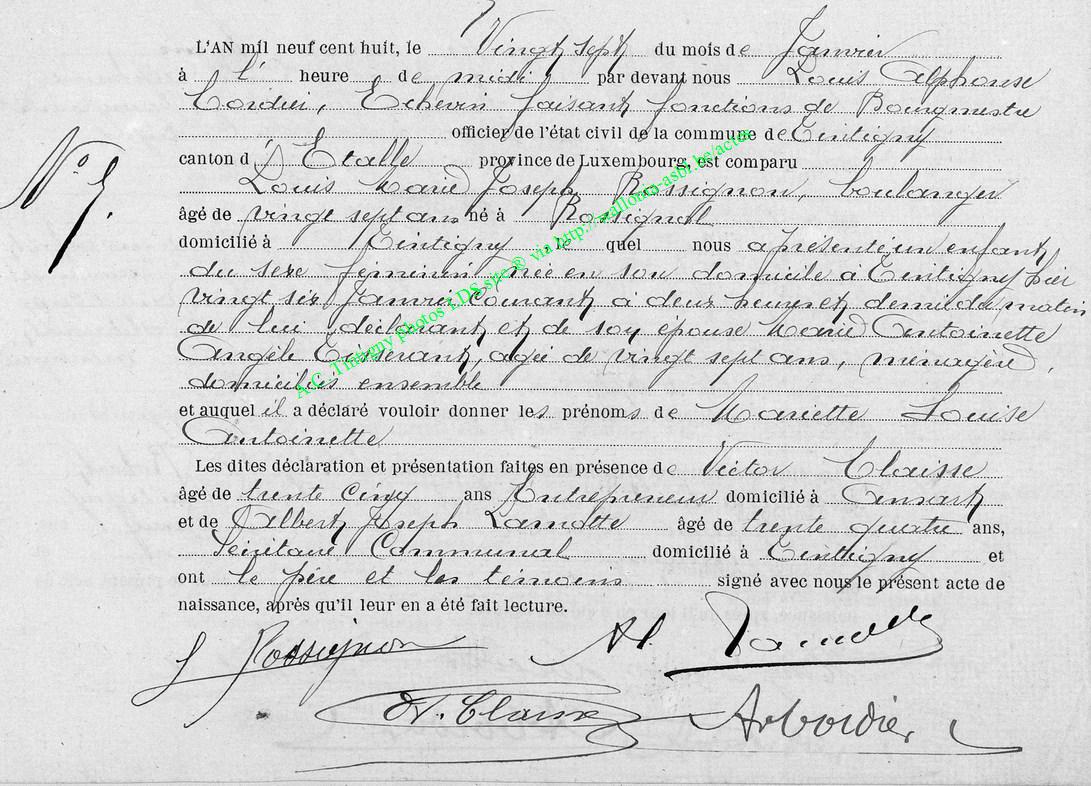 L'AN mil neuf cent huit, le Vingt sept du mois de Janvier
à l' heure de midi par devant nous Louis Alphonse
Cordier, Echevin faisant fonctions de Bourgmestre
officier de l'état civil de la commune de Tintigny
canton d'Etalle province de Luxembourg, est comparu
Louis Marie Joseph Rossignon, boulanger
âgé de vingt sept ans né à Rossignol
domicilié à Tintigny, le quel nous a présenté un enfant
du sexe féminin née en son domicile à Tintigny hier
vingt six Janvier courant à deux heures et demi du matin
de lui déclarant et de son épouse Marie Antoinette
Angèle agée de vingt sept ans, ménagère,
domiciliés ensemble
et auquel il a déclaré vouloir donner les prénoms de Mariette Louise
Antoinette
Les dites déclaration et présentation faites en présence de Victor Claisse
âgé de trente cinq ans Entrepreneur domicilié à Ansart
et de Albert Joseph Lamotte âgé de trente quatre ans,
Secrétaire Communal domicilié à Tintigny et
ont le père et les témoins signé avec nous le présent acte de
naissance, après qu'il leur en a été fait lecture.
L Rossignon Al Lamotte
V. Claisse Cordier
No 5.
A.C. Tintigny photos LDS site® via http://wallonia-asbl.be/actes